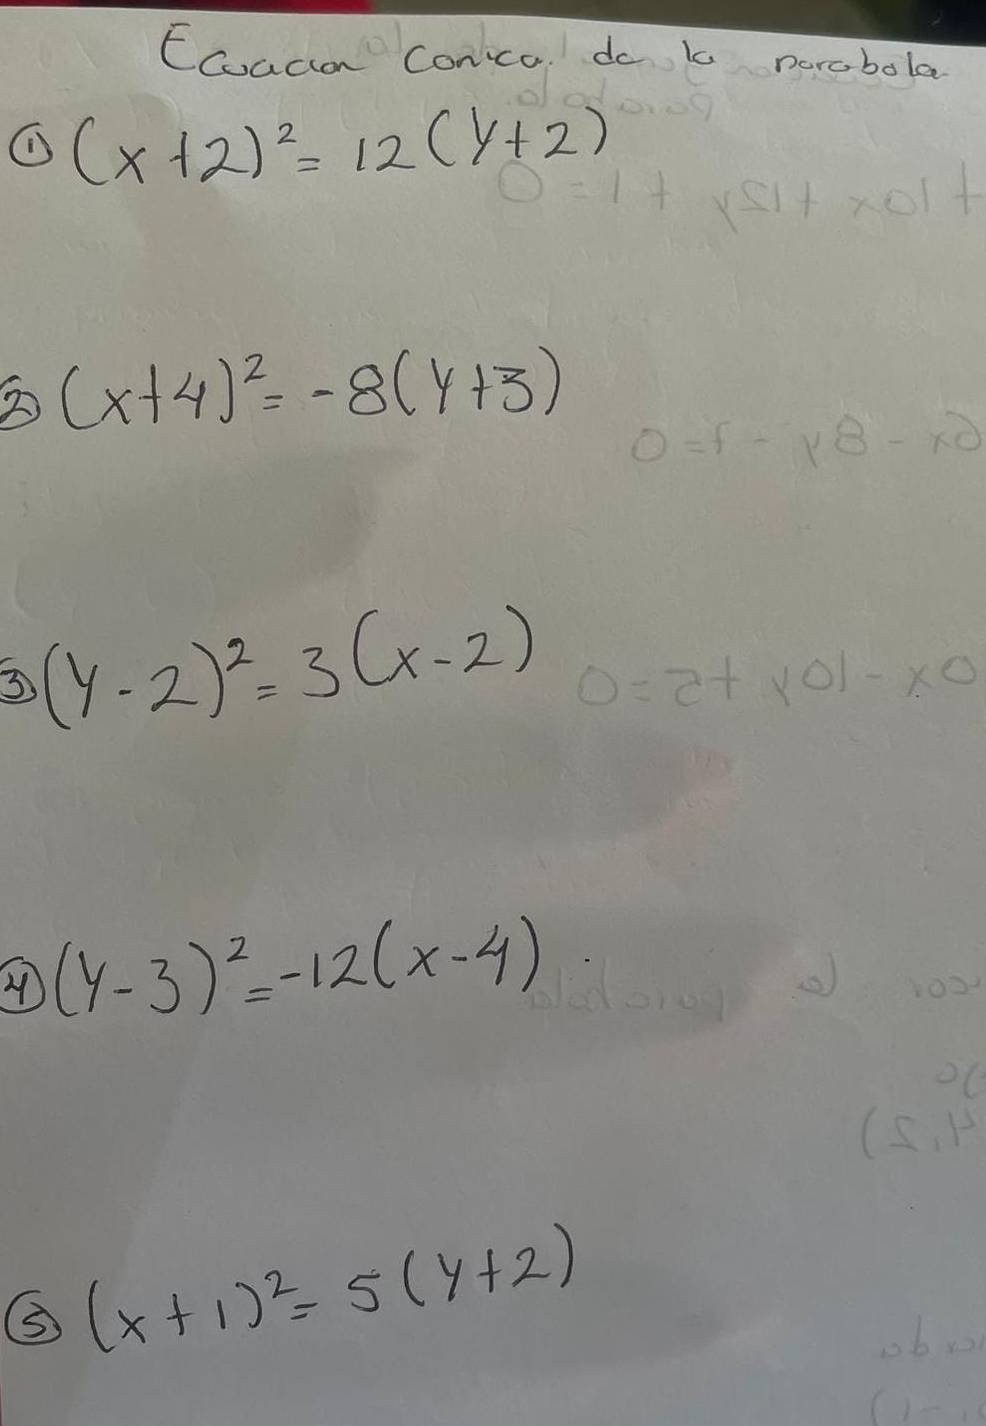 Ecuacion conica de la parabola
① (x+2)² = 12(y+2)
② (x+4)² = -8(y+3)
③ (y-2)² = 3(x-2)
④ (y-3)² = -12(x-4)
⑤ (x+1)² = 5(y+2)